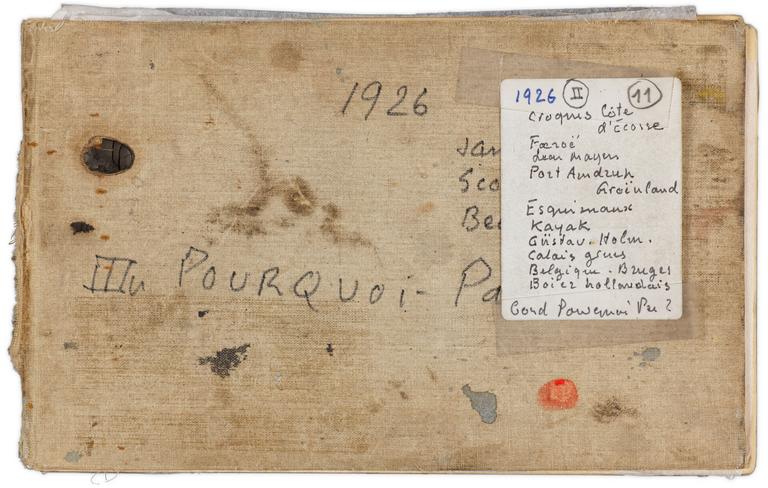 1926
Jan
Sco
Be
POURQUOI - Pa
1926 II 11
Croquis Côte
d'Écosse
Færoé
Jean Mayen
Port Amdrup
Groinland
Esquimaux
Kayak
Güstav. Holm.
Calais grues
Belgique. Bruges
Boier hollandais
Bord Pourquoi Pas ?